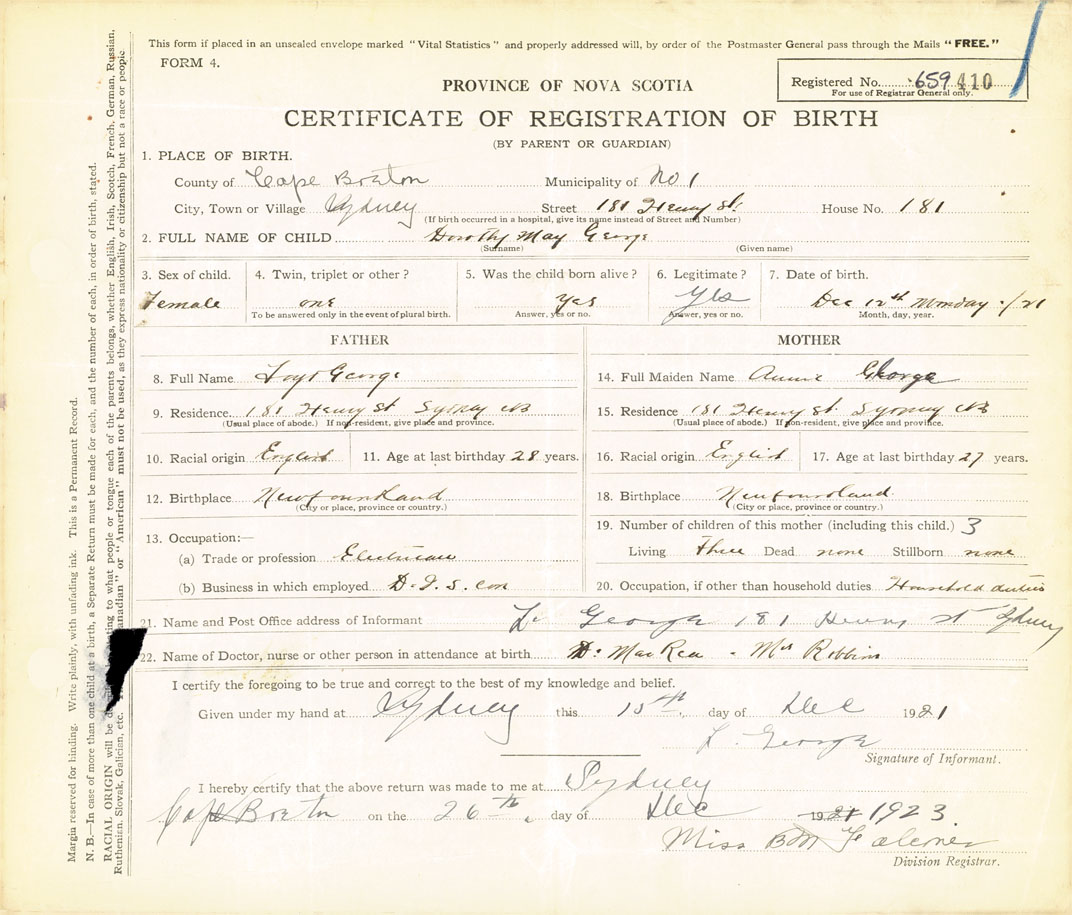 This form if placed in an unsealed envelope marked "Vital Statistics" and properly addressed will, by order of the Postmaster General pass through the Mails "FREE."
FORM 4.
Registered No. 659 410
For use of Registrar General only.
PROVINCE OF NOVA SCOTIA
CERTIFICATE OF REGISTRATION OF BIRTH
(BY PARENT OR GUARDIAN)
1. PLACE OF BIRTH.
County of Cape Breton Municipality of No 1
City, Town or Village Sydney Street 181 Henry St. House No. 181
(If birth occurred in a hospital, give its name instead of Street and Number)
2. FULL NAME OF CHILD Dorothy May George
(Surname) (Given name)
3. Sex of child. 4. Twin, triplet or other? 5. Was the child born alive? 6. Legitimate? 7. Date of birth.
Female one Yes Yes Dec 12th Monday /21
To be answered only in the event of plural birth. Answer, yes or no. Answer, yes or no. Month, day, year.
FATHER MOTHER
8. Full Name George 14. Full Maiden Name Annie George
9. Residence. 181 Henry St Sydney CB 15. Residence 181 Henry St. Sydney CB
(Usual place of abode.) If non-resident, give place and province. (Usual place of abode.) If non-resident, give place and province.
10. Racial origin English 11. Age at last birthday 28 years. 16. Racial origin English 17. Age at last birthday 27 years.
12. Birthplace Newfoundland 18. Birthplace Newfoundland
(City or place, province or country.) (City or place, province or country.)
13. Occupation:— 19. Number of children of this mother (including this child.) 3
(a) Trade or profession Electrician Living three Dead none Stillborn none
(b) Business in which employed D.I.S. Con 20. Occupation, if other than household duties Household duties
21. Name and Post Office address of Informant L. George 181 Henry St Sydney
22. Name of Doctor, nurse or other person in attendance at birth Dr MacRea - Mrs Robbins
I certify the foregoing to be true and correct to the best of my knowledge and belief.
Given under my hand at Sydney this 15th day of Dec 1921
L. George
Signature of Informant.
I hereby certify that the above return was made to me at Sydney
Cape Breton on the 26th day of Dec 1921 1923.
Miss BM Falconer
Division Registrar.
Margin reserved for binding. Write plainly, with unfading ink. This is a Permanent Record.
N. B.—In case of more than one child at a birth, a Separate Return must be made for each, and the number of each, in order of birth, stated.
RACIAL ORIGIN will be to what people or tongue each of the parents belongs, whether English, Irish, Scotch, French, German, Russian,
Ruthenian, Slovak, Galician, etc. "Canadian" or "American" must not be used, as they express nationality or citizenship but not a race or people